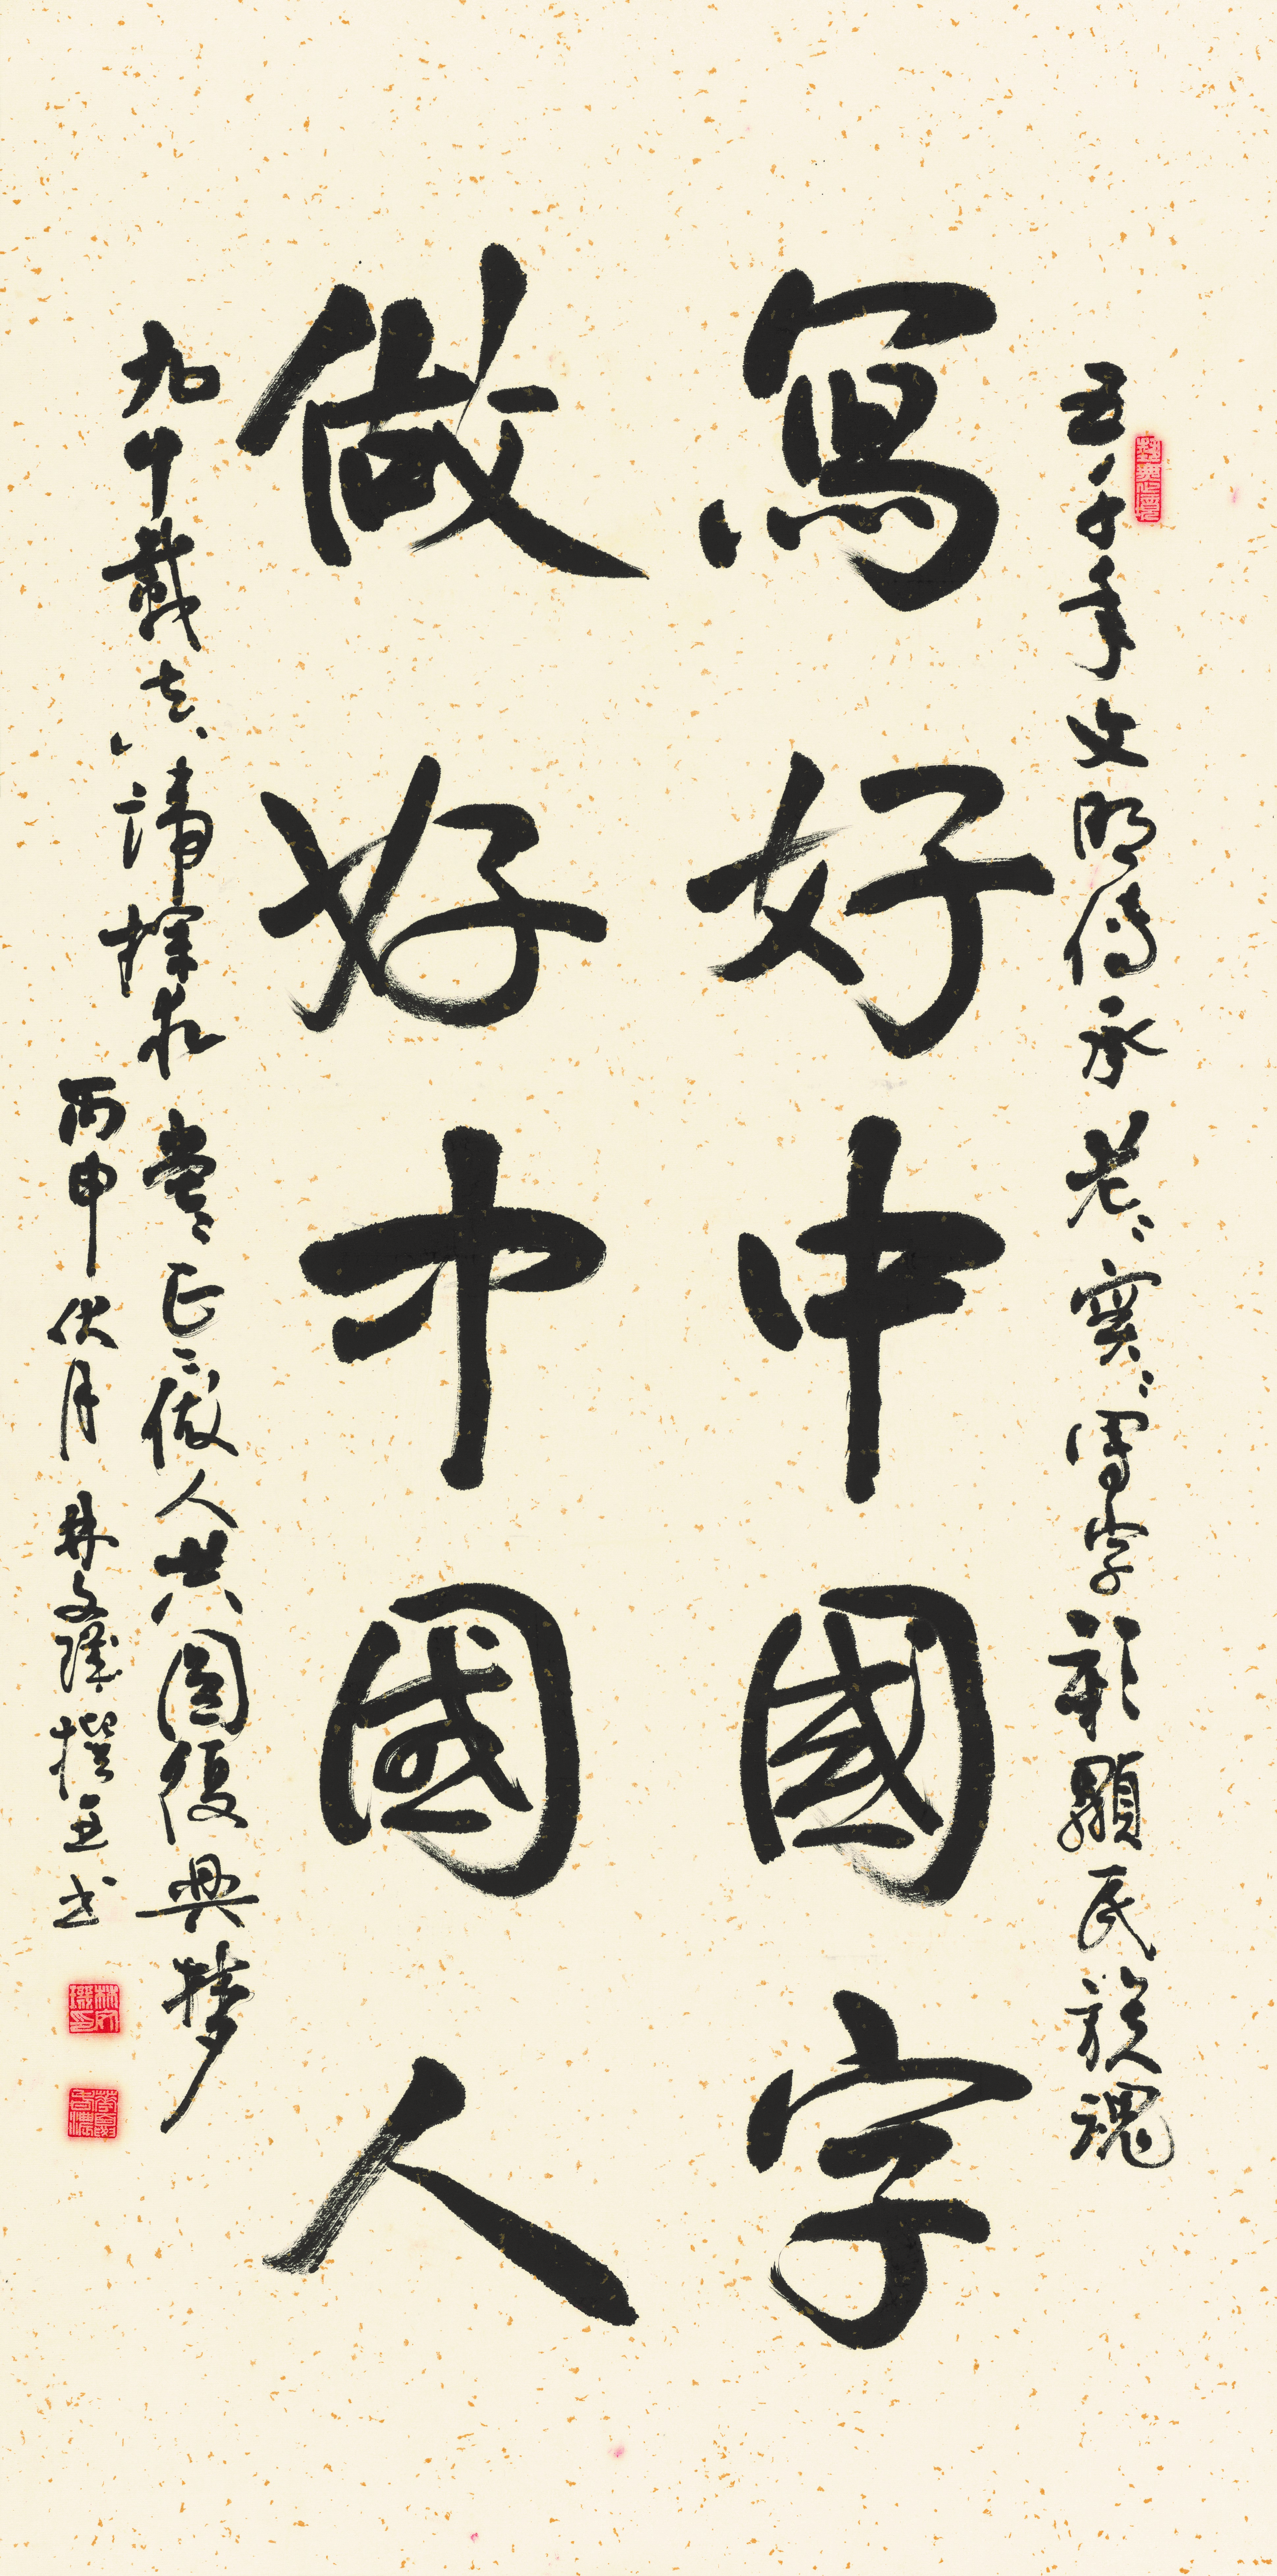 五千年文明傳承老老實實寫字彰顯民族魂
寫好中國字
做好中國人
九十載真諦探求堂堂正正做人共圓復興梦
丙申伏月林文璣撰並书